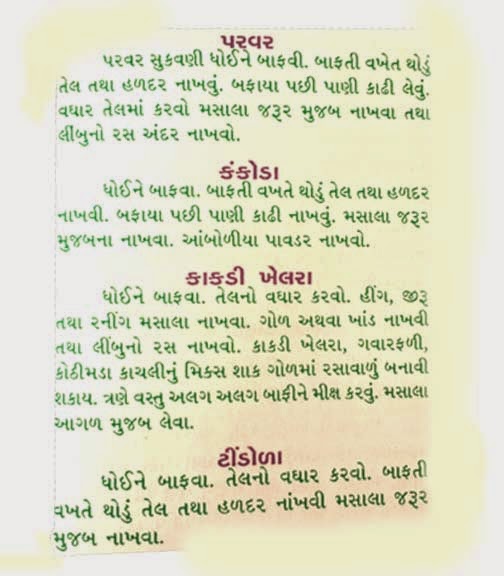 પરવર
પરવર સુકવણી ધોઈને બાફવી. બાફતી વખેત થોડું
તેલ તથા હળદર નાખવું. બફાયા પછી પાણી કાઢી લેવું.
વઘાર તેલમાં કરવો મસાલા જરૂર મુજબ નાખવા તથા
લીંબુનો રસ અંદર નાખવો.
કંકોડા
ધોઈને બાફવા. બાફતી વખતે થોડું તેલ તથા હળદર
નાખવી. બફાયા પછી પાણી કાઢી નાખવું. મસાલા જરૂર
મુજબના નાખવા. આંબોળીયા પાવડર નાખવો.
કાકડી ખેલરા
ધોઈને બાફવા. તેલનો વઘાર કરવો. હીંગ, જીરૂ
તથા રનીંગ મસાલા નાખવા. ગોળ અથવા ખાંડ નાખવી
તથા લીંબુનો રસ નાખવો. કાકડી ખેલરા, ગવારફળી,
કોઠીમડા કાચલીનું મિક્સ શાક ગોળમાં રસાવાળું બનાવી
શકાય. ત્રણે વસ્તુ અલગ અલગ બાફીને મીક્ષ કરવું. મસાલા
આગળ મુજબ લેવા.
ટીંડોળા
ધોઈને બાફવા. તેલનો વઘાર કરવો. બાફતી
વખતે થોડું તેલ તથા હળદર નાંખવી મસાલા જરૂર
મુજબ નાખવા.